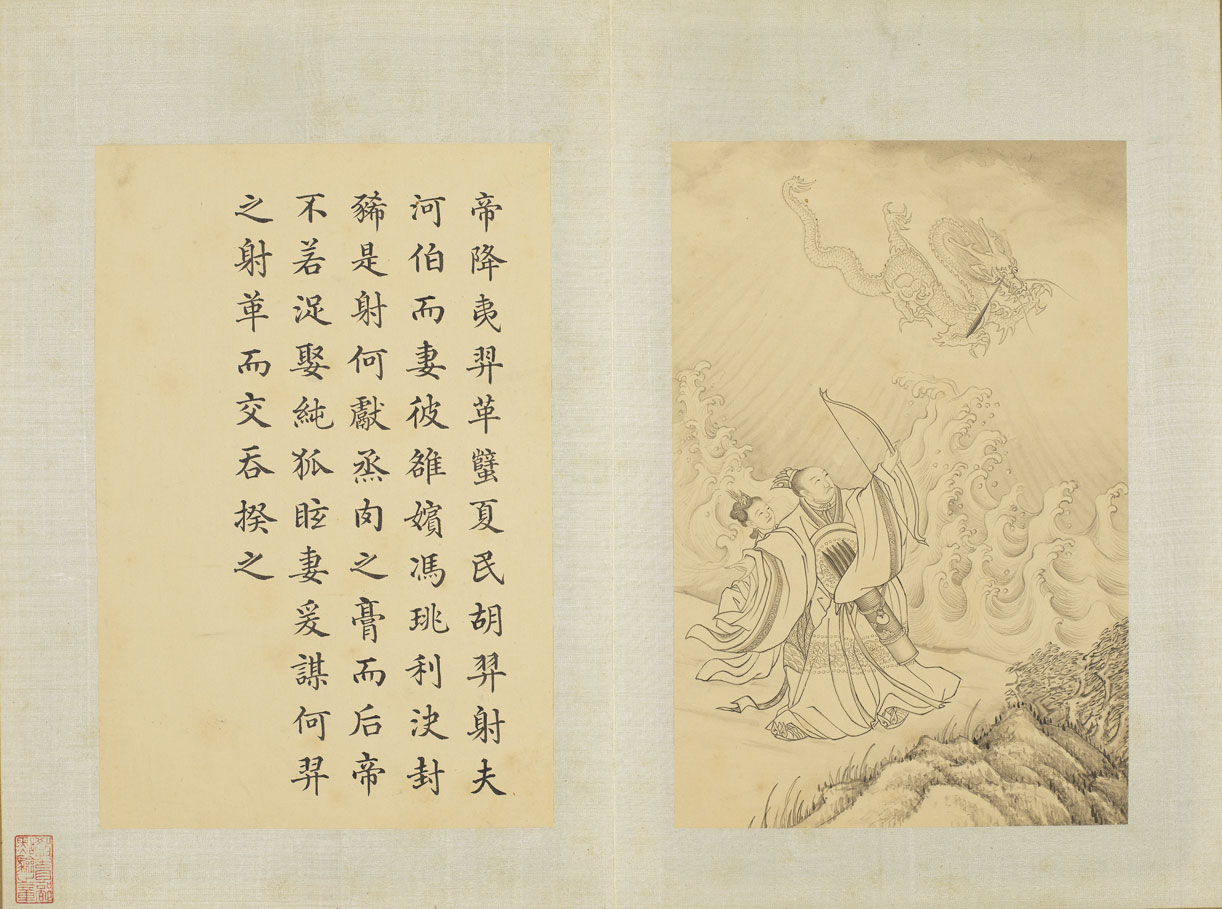 帝降夷羿革蠥夏民胡羿射夫
河伯而妻彼雒嬪馮珧利決封
豨是射何獻烝肉之膏而后帝
不若浞娶純狐眩妻爰謀何羿
之射革而交吞揆之